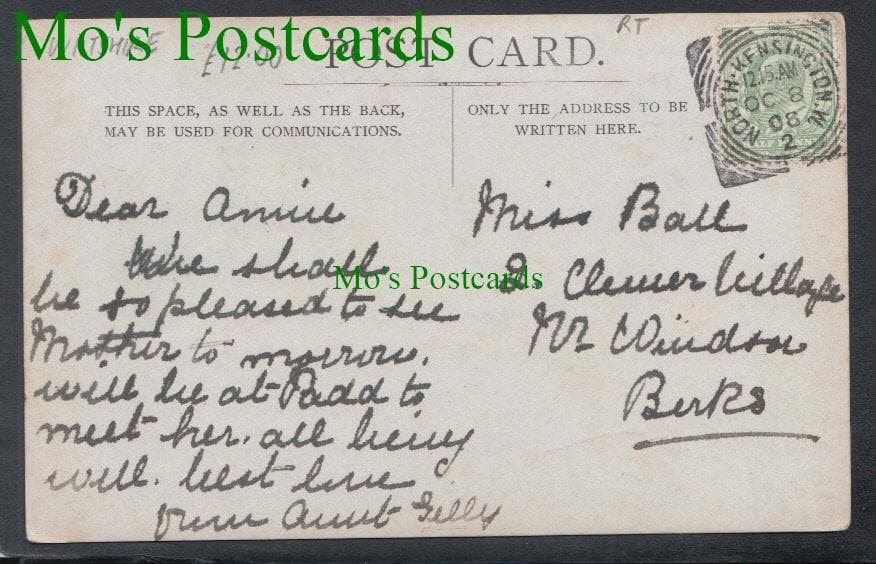 Mo's Postcards
WILTSHIRE
£12.00
RT
POST CARD.
THIS SPACE, AS WELL AS THE BACK,
MAY BE USED FOR COMMUNICATIONS.
ONLY THE ADDRESS TO BE
WRITTEN HERE.
NORTH·KENSINGTON.W.
12.15.AM
OC 8
08
2
Dear Annie
We shall
be so pleased to see
Mother to morrow.
will be at Padd to
meet her. all being
well. best love
from Aunt Gelly
Mo's Postcards
Miss Ball
2. Clewer Village
Nr Windsor
Berks